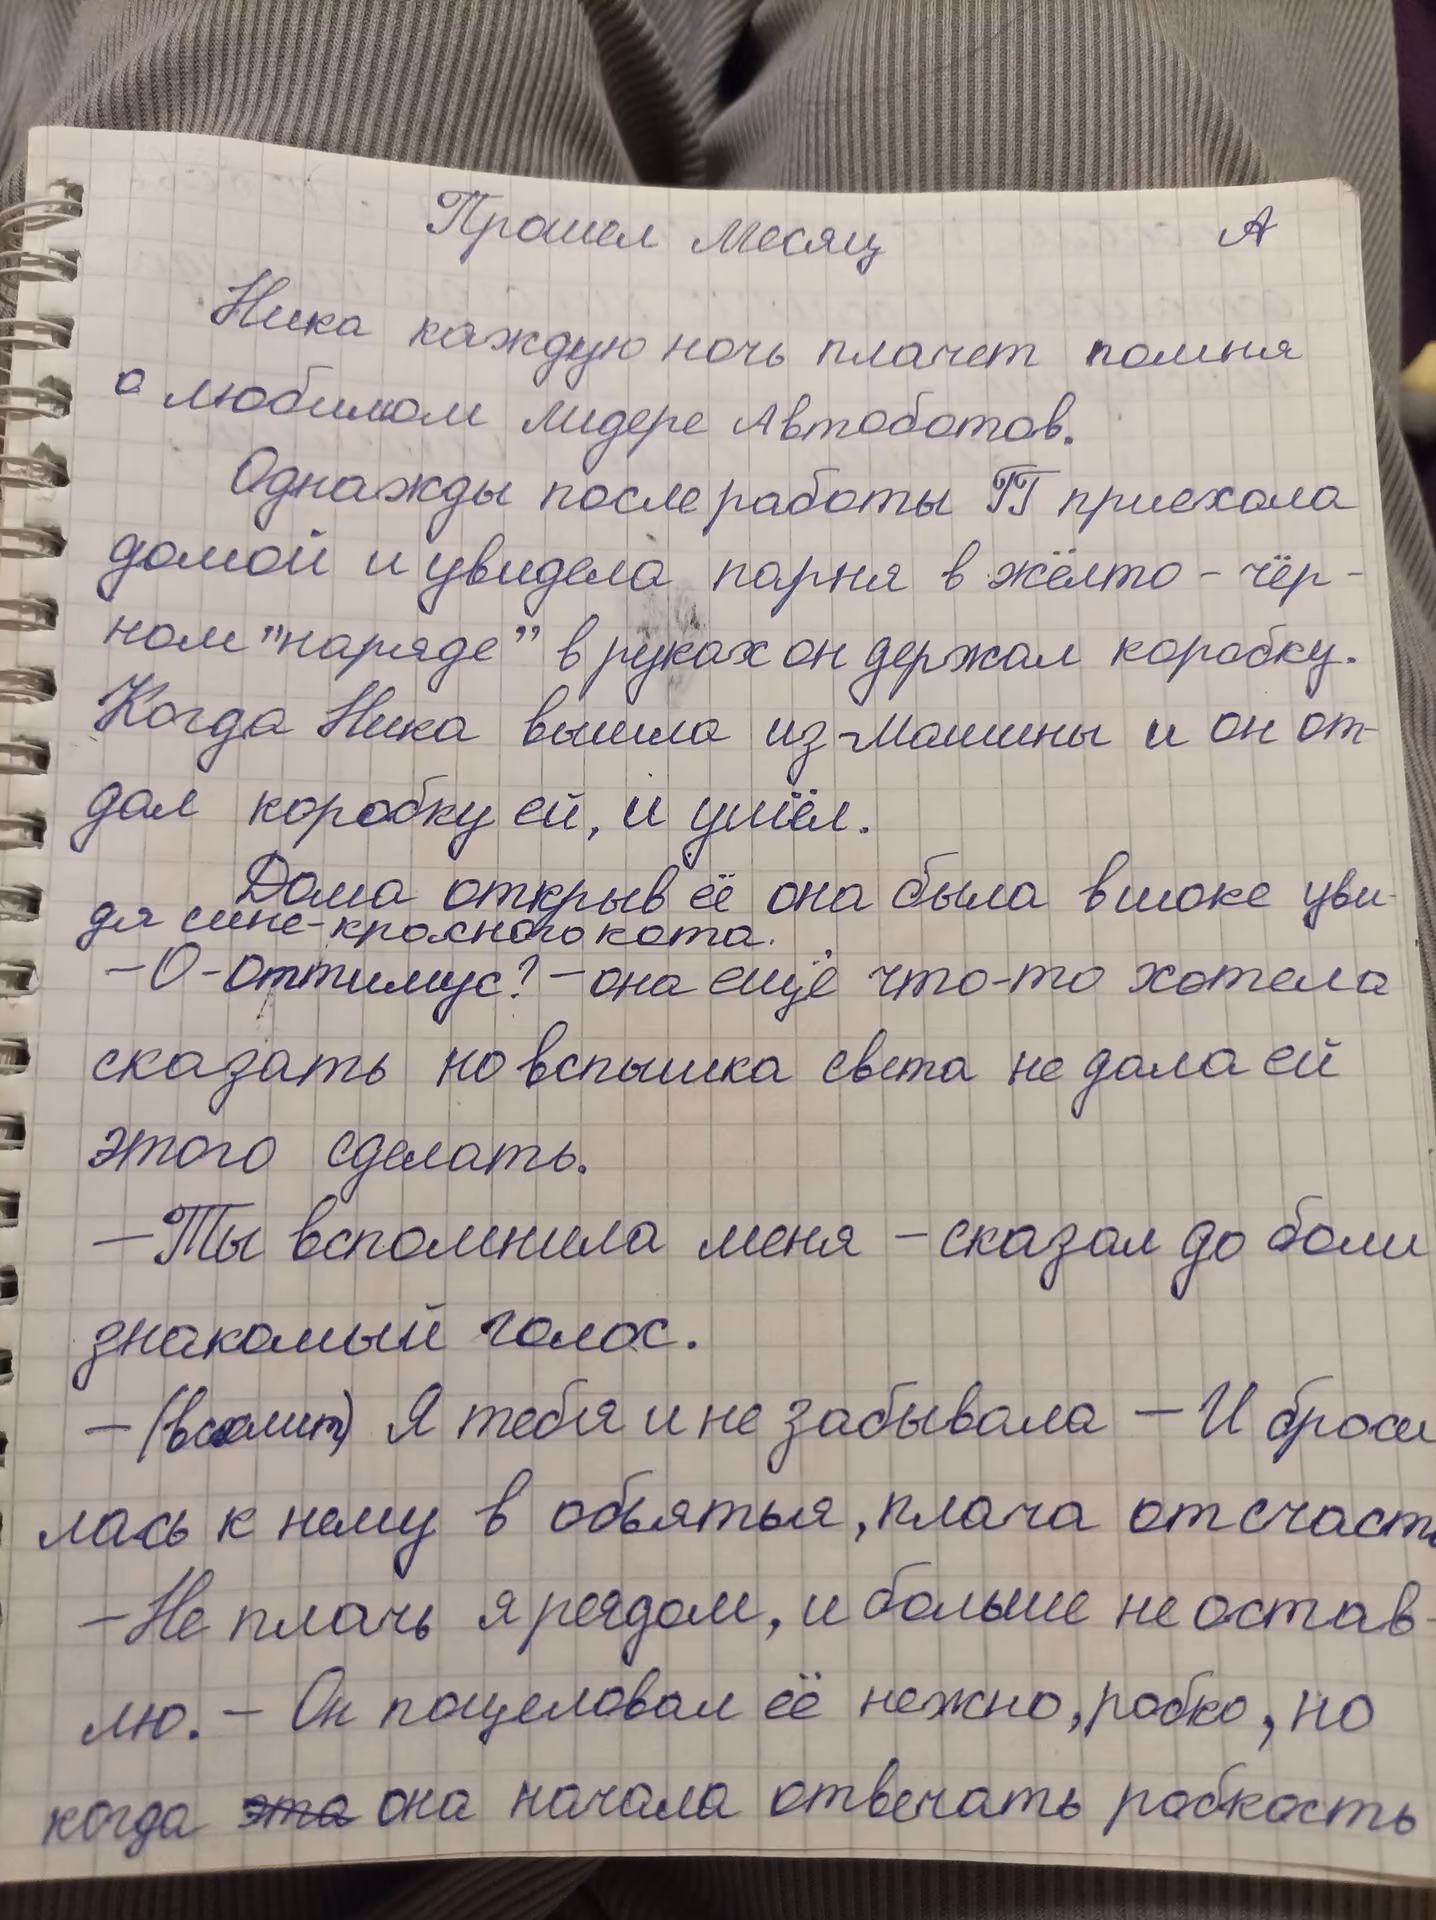 Прошел месяц А
Ника каждую ночь плачет помня
о любимом лидере Автоботов.
Однажды после работы ГГ приехала
домой и увидела парня в жёлто-чёр-
ном "наряде" в руках он держал коробку.
Когда Ника вышла из машины и он от-
дал коробку ей, и ушёл.
Дома открыв её она была в шоке уви-
дя сине-красного кота.
-О-оптимус? - она ещё что-то хотела
сказать но вспышка света не дала ей
этого сделать.
-Ты вспомнила меня - сказал до боли
знакомый голос.
- Я тебя и не забывала - И броси
лась к нему в обьятья, плача от счасть
-Не плачь я рядом, и больше не остав-
лю. - Он поцеловал её нежно, робко, но
когда эта она начала отвечать робкость